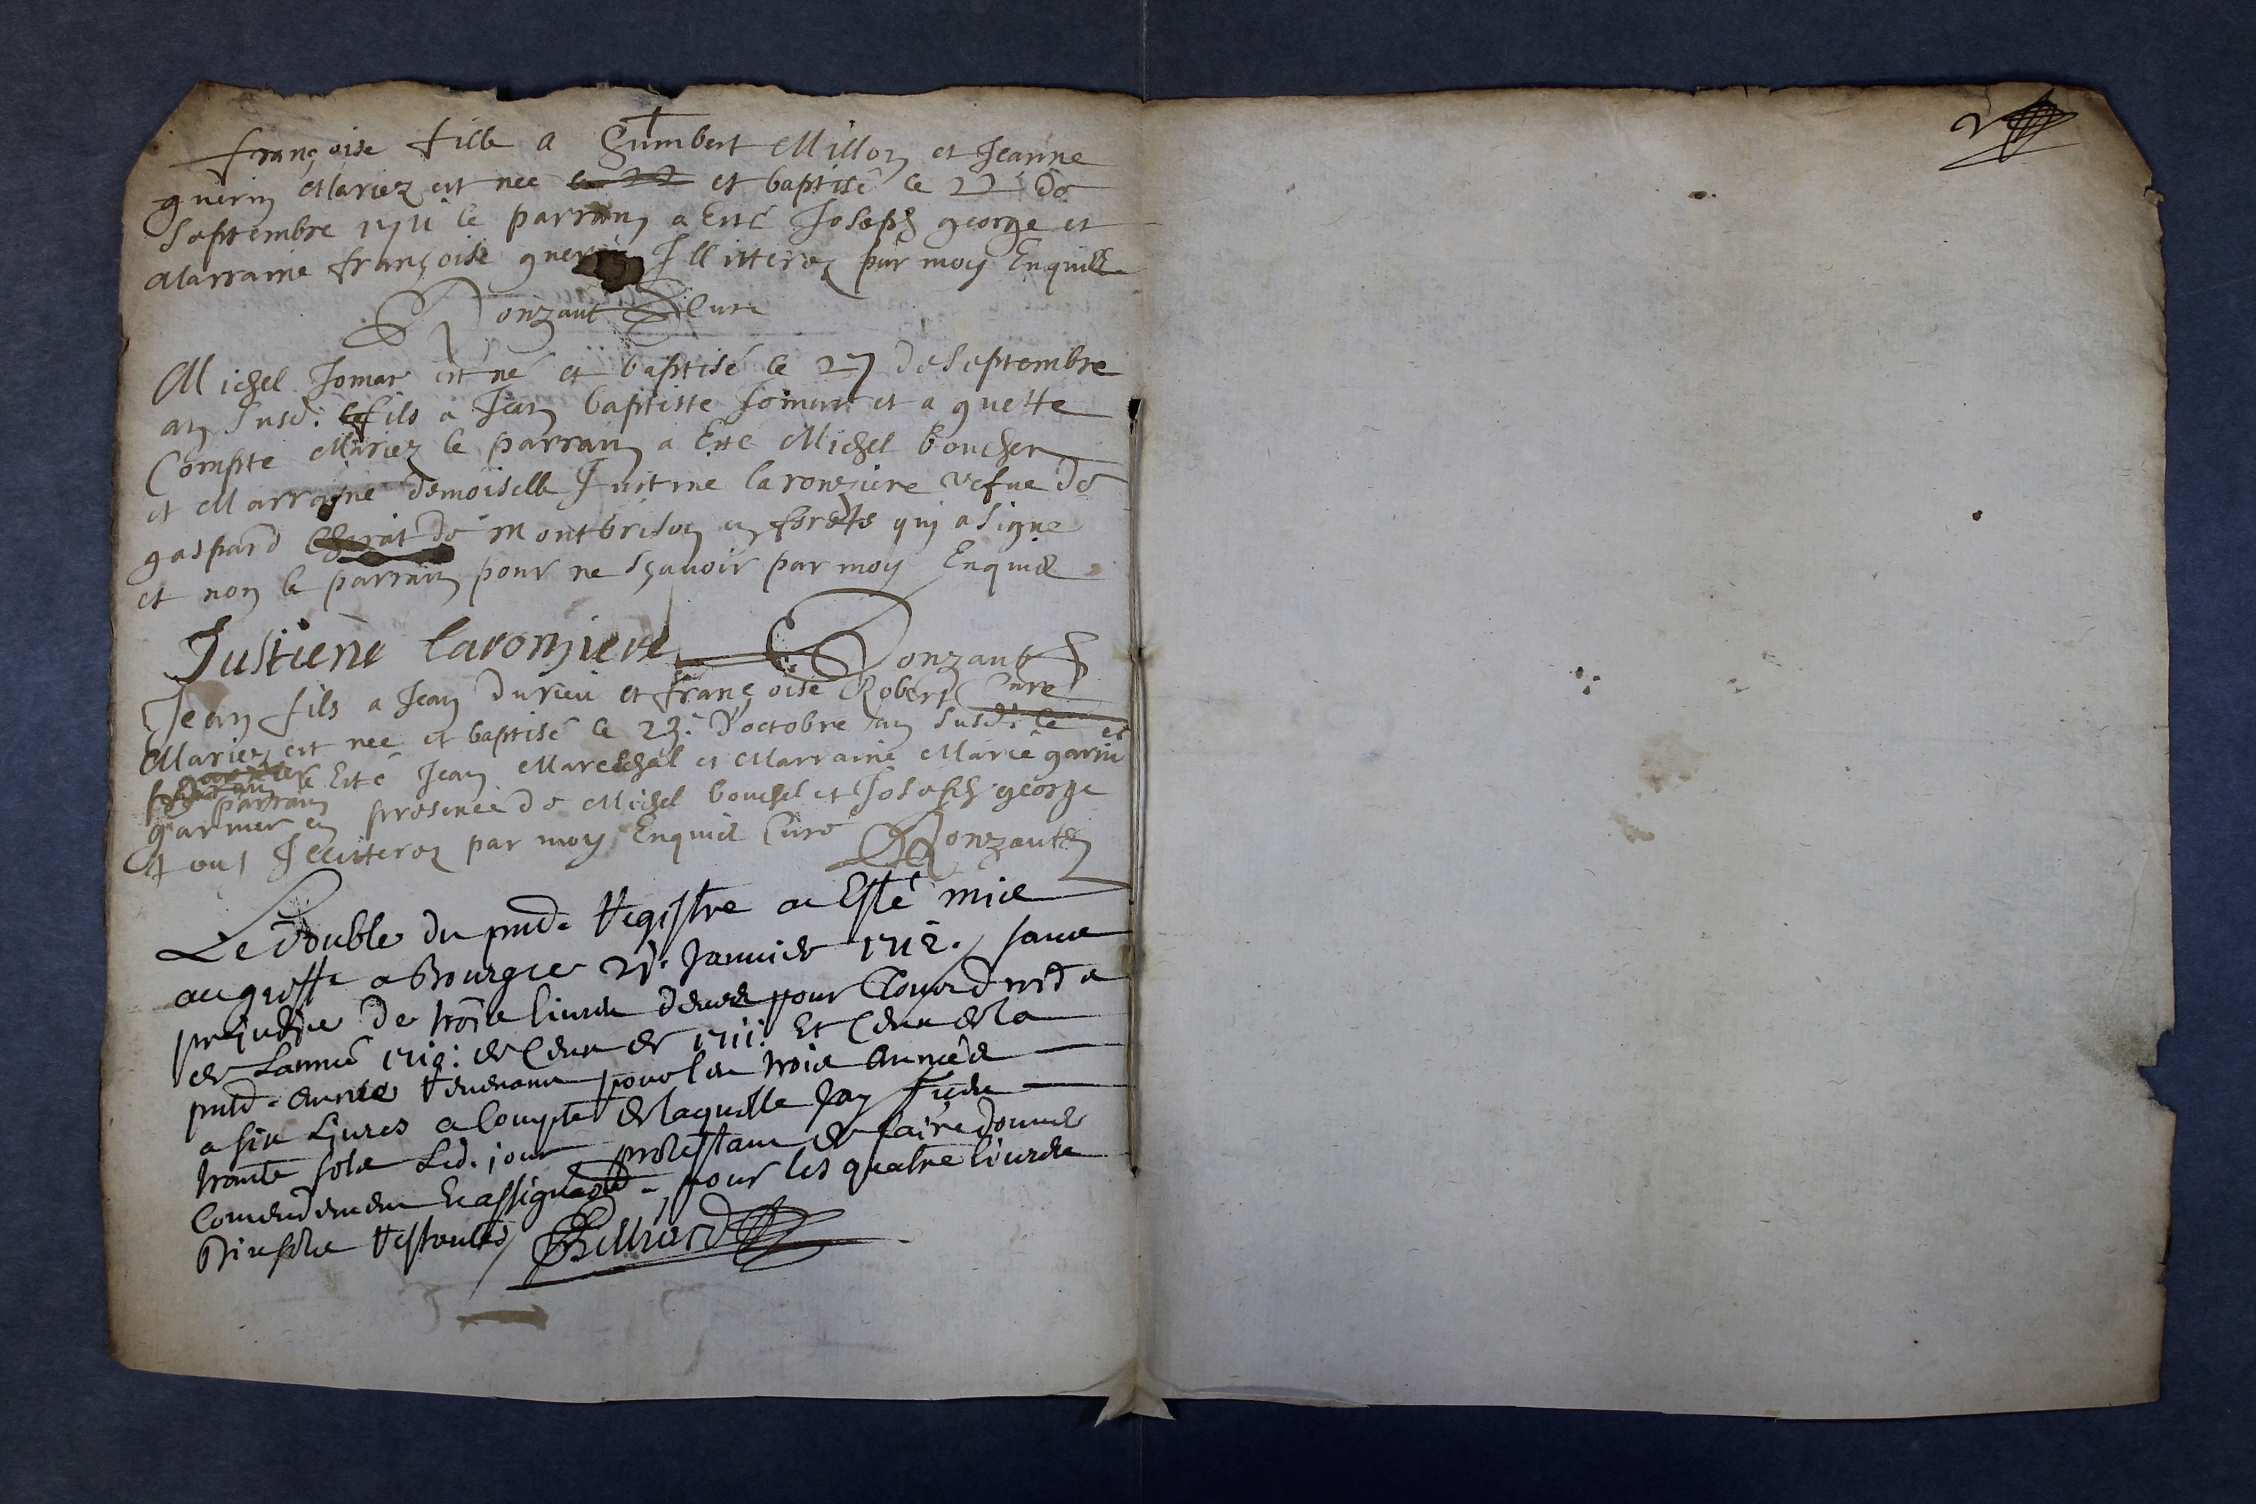 françoise fille a Humbert Millon et Jeanne
guerin Mariez est née le 22 et baptisé le 22 de
septembre 1711 le parrain a Esté Joseph george et
Marraine françoise guerin Illitterez par moy Enquis
Ronzaut Curé
Michel Jomar est né et baptisé le 27 de septembre
an susd. fils a Jean baptiste Jomar et a guette
Compte Mariez le parrain a Esté Michel boucher
et Marraine demoiselle Justine laronziere vefue de
gaspard Cherat de Montbrison en forets qui a signe
et non le parrain pour ne sçauoir par moy Enquis
Justiene laronziere Ronzaut
Curé
Jean fils a Jean durieu et françoise Robert
Mariez est née et baptisé le 23. d'octobre an susd. le
parrain a Esté Jean Mareschal et Marraine Marie garni et
parrain
garnier en presence de Michel bouchet et Joseph george
tous Illitterez par moy Enquis Curé Ronzaut
Le double du pnt. Registre a Esté mis
au greffe a Bourg le 21. Januier 1712. sauf
prejudice de trois liures deues pour
de Lannée 1710: de Celle de 1711: Et Celle de la
pnte. année Reuenant pour les trois années
a six Liures a Compte de laquelle Jay Receu
trante sols Led. jour protestant de faire donner
Comendement Et assignaon. pour les quatre liures
dix sols Restantes Billiard
2